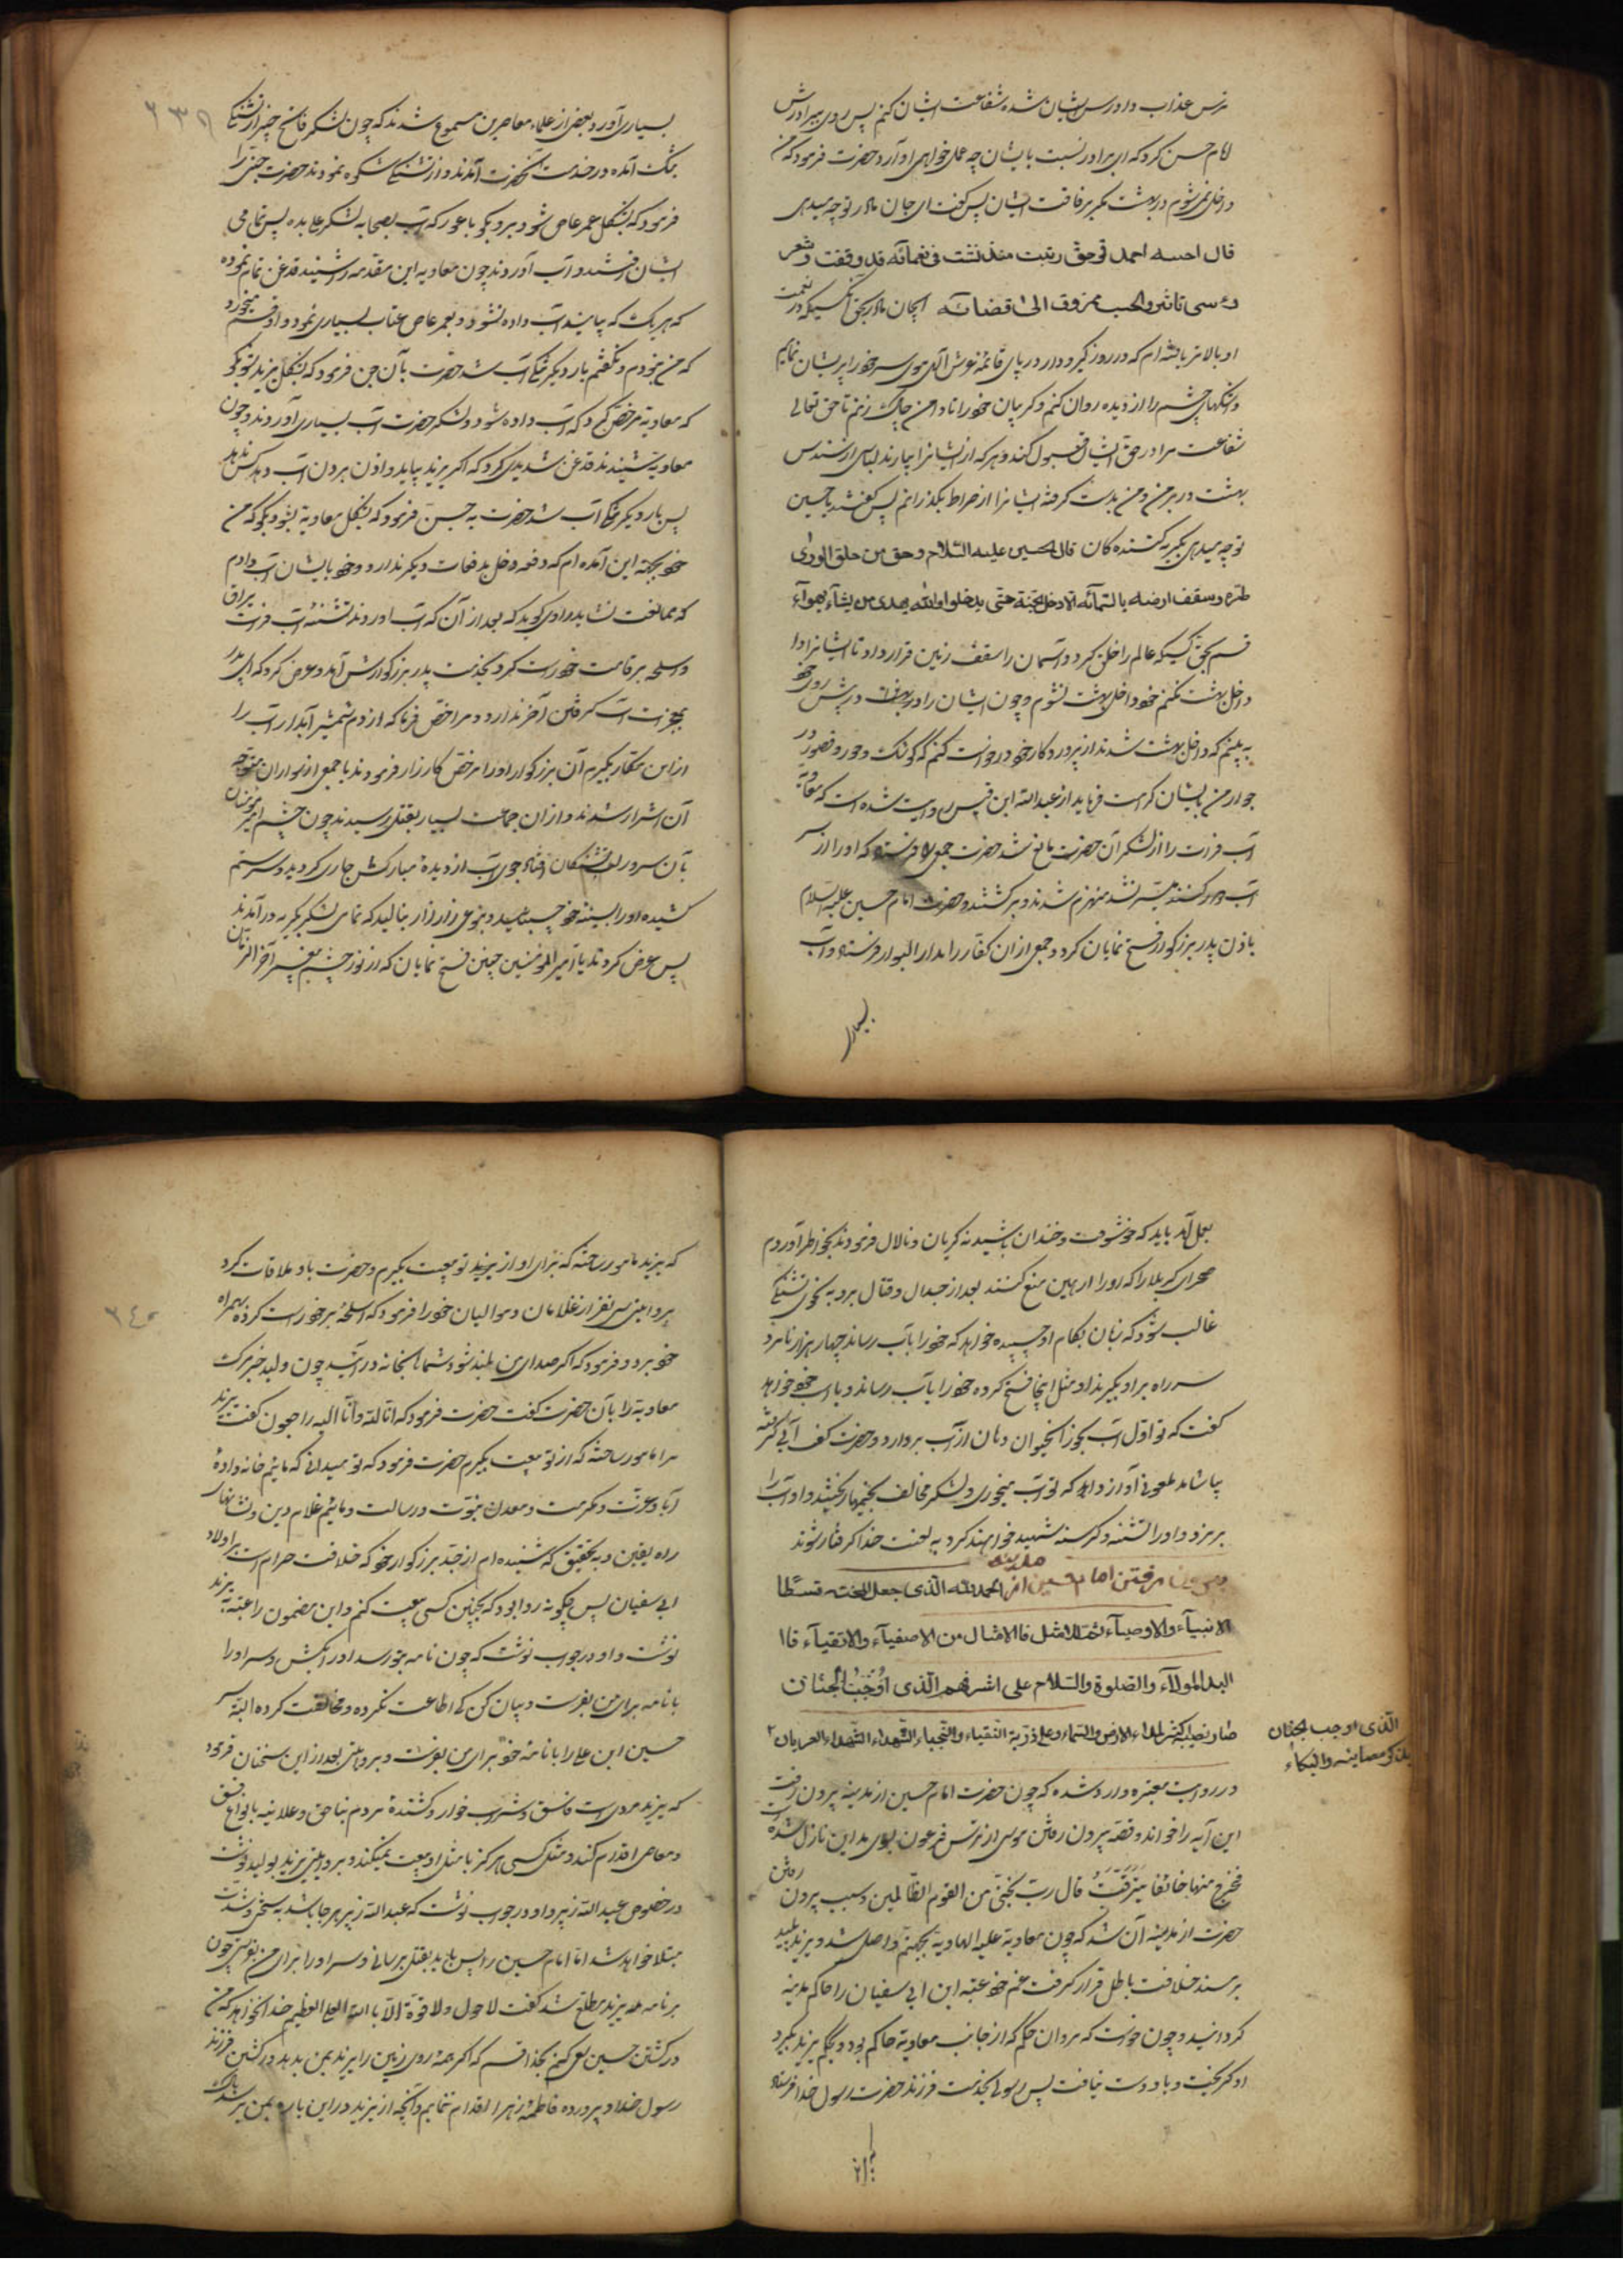 ترس عذاب دادرس ایشان شده شفاعت ایشان کنم پس روی ببرادرش
امام حسن کرد که ای برادر نسبت بایشان چه عمل خواهی آورد حضرت فرمود که من
داخل نمی‌شوم در بهشت مگر برفاقت ایشان پس گفت ای جان مادر تو چه میدهی
قال احسه احمد فی حق ربیت منذ نشئت فی نعمائه قد وقفت و شعر
الی قضائه ای جان مادر بحق آنکسیکه در نعمت
او بالا تربا شده‌ام که در روز گیرودار در پای قائمه عرش الهی موی سر خود را پریشان نمایم
و اشکهای چشم را از دیده روان کنم و گریبان خود را تا دامن چاک زنم تا حق تعالی
شفاعت مرا در حق ایشان قبول کند و هر که از ایشانرا بیارند لباسی از سندس
بهشت در بر من و من بدست گرفته ایشانرا از صراط بگذرانم پس گفتند یا حسین
تو چه میدهی بگریه کننده کان قال الحسین علیه السّلام و حق من خلق الوری
طرّه و سقف ارضه بالسّمائه لا ادخل الجنّة حتی یدخلوا والله یهدی من یشآء بهوآء
قسم بحق کسیکه عالم را خلق کرد و آسمان را سقف زمین قرار داد تا ایشانرا
داخل بهشت نکنم خود داخل بهشت نشوم و چون ایشان را در بهشت در پیش روی خود
به بینم که داخل بهشت شدند از پروردگار خود درخواست کنم که کوشک و حور و قصور در
جوار من بایشان کرامت فرماید از عبدالله ابن قیس روایت شده است که معاویة
آب فرات را از لشکر آن حضرت مانع شد حضرت جمعی را فرستاد که او را از سر
آب دور کنند میسّر نشد منهزم شدند و برگشتند و حضرت امام حسین علیه السّلام
باذن پدر بزرگوار فتح نمایان کرد و جمعی از ان کفّار را بدار البوار فرستاد و آب
بسیاری
۲۳۹
بسیاری آورد و بعضی از علماء معاصرین مسموع شدند که چون لشکر فاتح خیبر از تشنگی
بتنگ آمده در خدمت آنحضرت آمدند و از تشنگی شکوه نمودند حضرت جنّی را
فرمود که بشکل عمر عاص شود برو بگو باعور که آب بصحابه لشکر علی بده پس تمامی
ایشان رفتند و آب آوردند چون معاویه این مقدمه را شنید قدغن تمام نموده
که هر یک که بیایند آب داده نشود و بعمر عاص عتاب بسیاری نمود و او قسم میخورد
که من نبودم و نگفتم بار دیگر تنگی آب شد حضرت بآن جن فرمود که بشکل یزید شو بگو
که معاویة مرخص کرد که آب داده شود و لشکر حضرت آب بسیاری آوردند و چون
معاویة شنیدند قدغن شدیدی کرد که اگر یزید بیاید و اذن بردن آب دهد کس ندهد
پس بار دیگر تنگی آب شد حضرت به جن فرمود که بشکل معاویة بشو و بگو که من
خود بجهة این آمده‌ام که دفعه دخل بدفعات دیگر ندارد و خود بایشان آب دادم
که ممانعت نشاید راوی گوید که بعد از آن که آب اوردند تشنه آب فرات یراق
و اسلحه بر قامت خود راست کرد بخدمت پدر بزرگوارش آمد و عرض کرد که ای پدر
بمعجزت آب گرفتن آخر ندارد و مرا مرخص فرما که از دم شمشیر آبدار آب را
از این کفّار بگیرم آن بزرگوار او را مرخص کارزار فرمودند با جمعی از سواران متوجّه
آن اشرار شدند و از ان جماعت بسیار بقتل رسیدند چون چشم امیر مومنان
بآن سرور لب تشنگان افتاد جوی آب از دیدهٔ مبارکش جاری گردید دست
کشیده او را بسینه خود چسبانید و بنوعی زار زار بنالید که تمامی لشکر بگریه درآمدند
پس عرض کردند یا امیر المؤمنین چنین فتح نمایان که از نور چشم پیغمبر آخر الزمان
بعمل آمد باید که خوشوقت و خندان باشید نه گریان و نالان فرمودند بخاطر آوردم
صحرای کربلا را که او را از همین منع کنند بعد از جدال و قتال برو به نحوی تشنگی
غالب شود که زبان بکام او چسبیده خواهد که خود را باب رساند چهار هزار نامرد
سر راه بر او بگیرند او مثل اینجا فتح کرده خود را بآب رساند و باسب خود خواهد
گفت که تو اول آب بخور آنحیوان دهان از آب بردارد و حضرت کف آبی گرفته
بیاشامد ملعونی آواز دهد که تو آب میخوری و لشکر مخالف بخیمها ریختند و او آب را
بریزد و او را تشنه و گرسنه شهید خواهند کرد به لعنت خدا گرفتار شوند
بیرون رفتن امام حسین از مدینه الحمد لله الذی جعل المحنة قسطا
الانبیآء و الاوصیآء ثمّ الامثل فالامثال من الاصفیآء و الاتقیآء
البدا لمولاء و الصّلوة و السّلام علی اشرفهم الّذی اوجبت الجنان
و علی ذرّیة النّقباء و النّجباء الشّهداء الشّهداء العریان
الّذی اوجب الجنان
بذکر مصایبه و البکاء
در روایت معتبره وارد شده که چون حضرت امام حسین از مدینه بیرون رفت
این آیه را خواند و قصّه بیرون رفتن موسی از ترس فرعون بسوی مداین نازل شده است
فخرج منها خائفا یترقّب قال ربّ نجّنی من القوم الظّالمین و سبب بیرون رفتن
حضرت از مدینه آن شد که چون معاویة علیه الهاویة بجهنّم واصل شد و یزید پلید
بر مسند خلافت باطل قرار گرفت عم خود عتبه ابن ابی سفیان را حاکم مدینه
گردانید و چون خواست که مروان حکم که از جانب معاویة حاکم بود و بحکم یزید بگیرد
او گریخت و باو دست نیافت پس رسولی بخدمت فرزند حضرت رسول خدا فرستاد
۲۴۰
که یزید مامور ساخته که برای او از یزید تو بیعت بگیرم و حضرت باو ملاقات کرد
بروایتی سی نفر از غلامان و موالیان خود را فرمود که اسلحه بر خود راست کرده همراه
خود برد و فرمود که اگر صدای من بلند شود شما بخانه درآئید چون ولید خبر مرگ
معاویة را بآن حضرت گفت حضرت فرمود که انّا لله و انّا الیه راجعون گفت یزید
مرا مامور ساخته که از تو بیعت بگیرم حضرت فرمود که تو میدانی که مائیم خانه‌وادهٔ
آبا و عزّت و مکرمت و معدن نبوّت و رسالت و مائیم اعلام دین و نشانهای
راه یقین و به تحقیق که شنیده‌ام از جد بزرگوار خود که خلافت حرام است بر اولاد
ابی سفیان پس چگونه روا بود که بچنین کسی بیعت کنم و این مضمون را عتبه به یزید
نوشت و او در جواب نوشت که چون نامه بتو رسد او را بکش و سر او را
با نامه برای من بفرست و بیان کن که کی اطاعت نکرده و مخالفت کرده البتّه سر
حسین ابن علی را با نامهٔ خود برای من بفرست و بروایتی بعد از این سخنان فرمود
که یزید مردی است فاسق و شراب خوار و کشندهٔ مردم بناحق و علانیه بانواع فسق
و معاصی اقدام کند و مثل کسی هرگز با مثل او بیعت نمیکند و بروایتی یزید بولید نوشت
در خصوص عبدالله زبیر و او در جواب نوشت که عبدالله زبیر هر جا باشد به سختی و شدّت
مبتلا خواهد شد امّا امام حسین را پس باید بقتل برسانی و سر او را برای من بفرستی چون
بر نامهٔ یزید مطلع شد گفت لا حول و لا قوّة الّا بالله العلی العظیم خدا نخواهد که من
در کشتن حسین سعی کنم بخدا قسم که اگر همه روی زمین را یزید بمن بدهد در کشتن فرزند
رسول خدا و پرورده فاطمهٔ زهرا اقدام ننمایم و آنچه از یزید در این باره بمن برسد باک